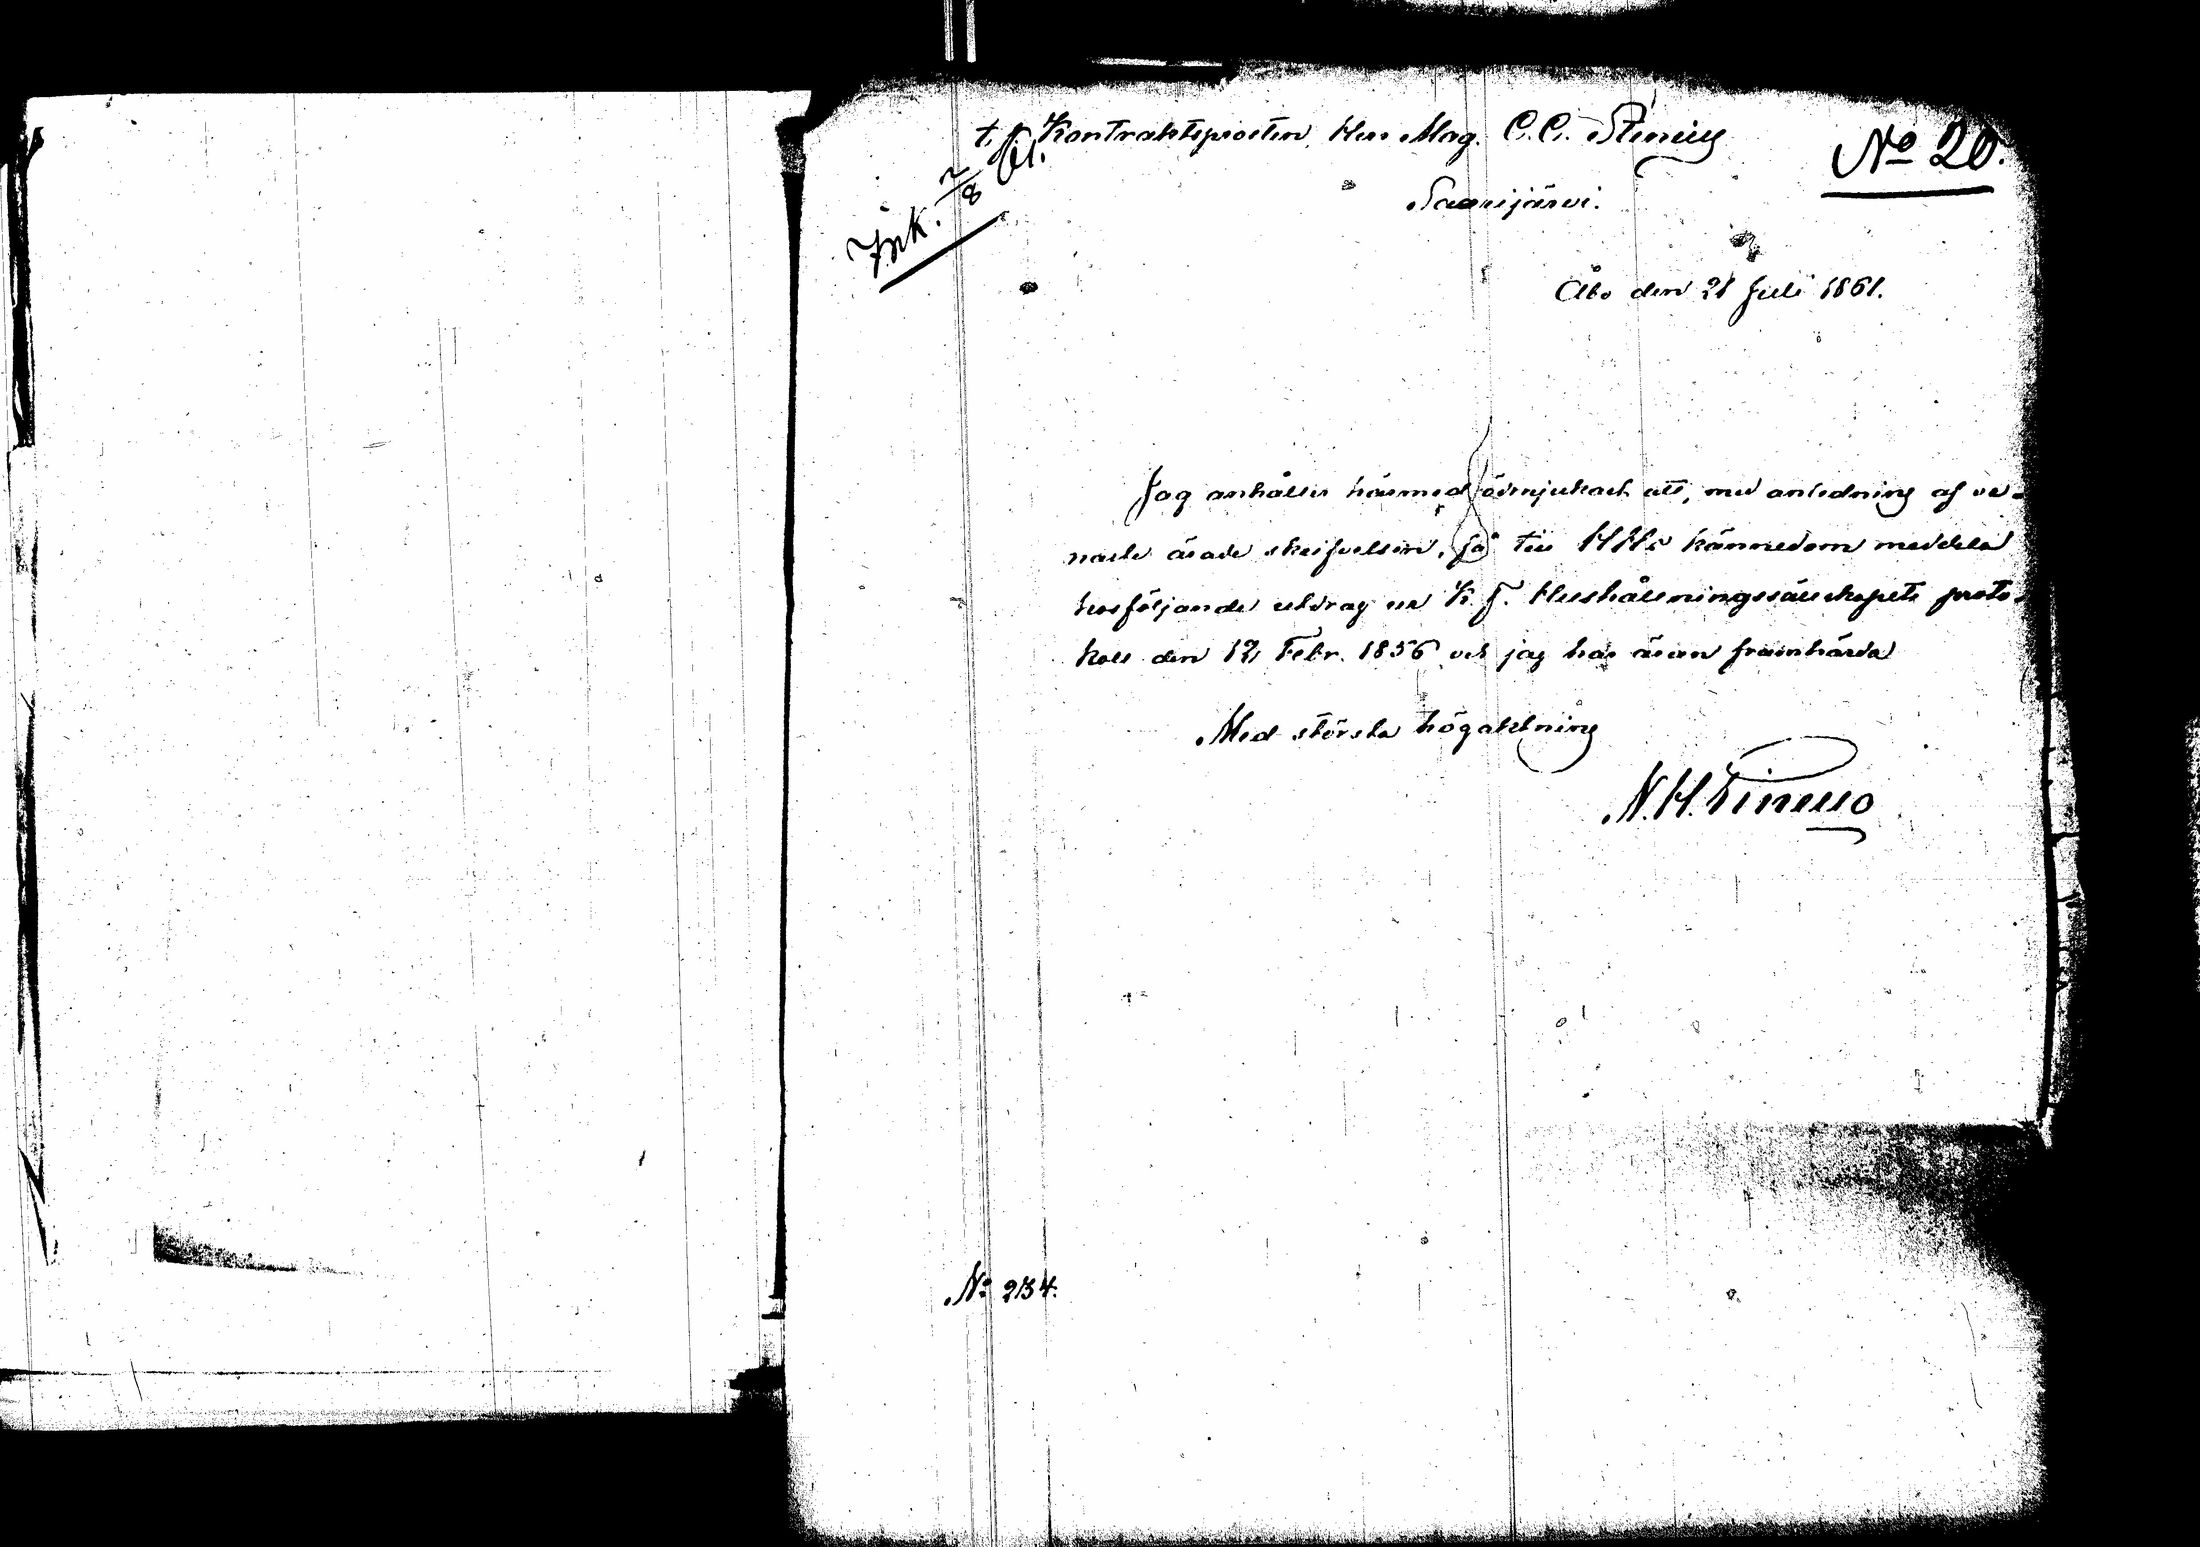 t. f. Kontraktsprosten, Herr Mag. C. C. Stenius
No 20.
Saarijärvi.
Ink. 2/8 61.
Åbo den 21 Juli 1861.
Jag anhåller härmed ödmjukast att, med anledning af ve-
naste ärade skrifvelsen, få till HHs kännedom meddela
hosföljande utdrag ur K. F. Hushållningssällskapets proto-
koll den 12 Febr. 1856 och jag har äran framhärda
Med största högaktning
N. H. Pinello
No 234.